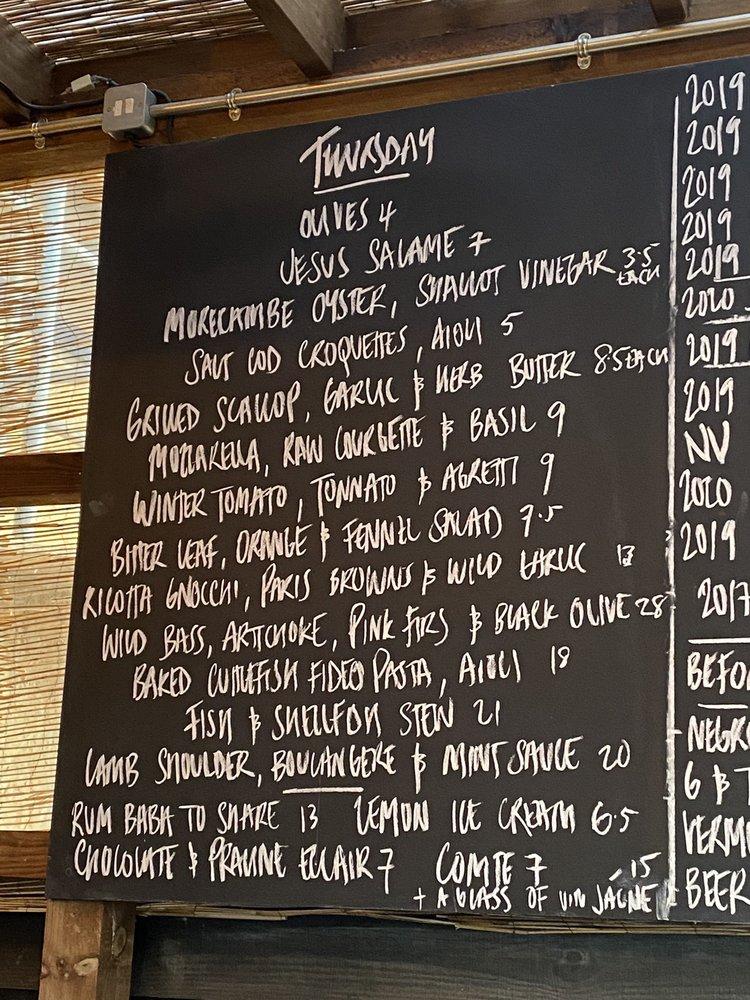 THURSDAY
OLIVES 4
JESUS SALAME 7
MORECAMBE OYSTER, SHALLOT VINEGAR 3.5 EACH
SALT COD CROQUETTES, AIOLI 5
GRILLED SCALLOP, GARLIC & HERB BUTTER 8.5 EACH
MOZZARELLA, RAW COURGETTE & BASIL 9
WINTER TOMATO, TONNATO & AGRETTI 9
BITTER LEAF, ORANGE & FENNEL SALAD 7.5
RICOTTA GNOCCHI, PARIS BROWNS & WILD GARLIC 13
WILD BASS, ARTICHOKE, PINK FIRS & BLACK OLIVE 28
BAKED CUTTLEFISH FIDEO PASTA, AIOLI 18
FISH & SHELLFISH STEW 21
LAMB SHOULDER, BOULANGERE & MINT SAUCE 20
RUM BABA TO SHARE 13 LEMON ICE CREAM 6.5
CHOCOLATE & PRALINE ECLAIR 7 COMTE 7
+ A GLASS OF VIN JAUNE 15
2019
2019
2019
2019
2019
2020
2019
2019
NV
2020
2019
2017
BEFO
NEGR
G & T
VERM
BEER